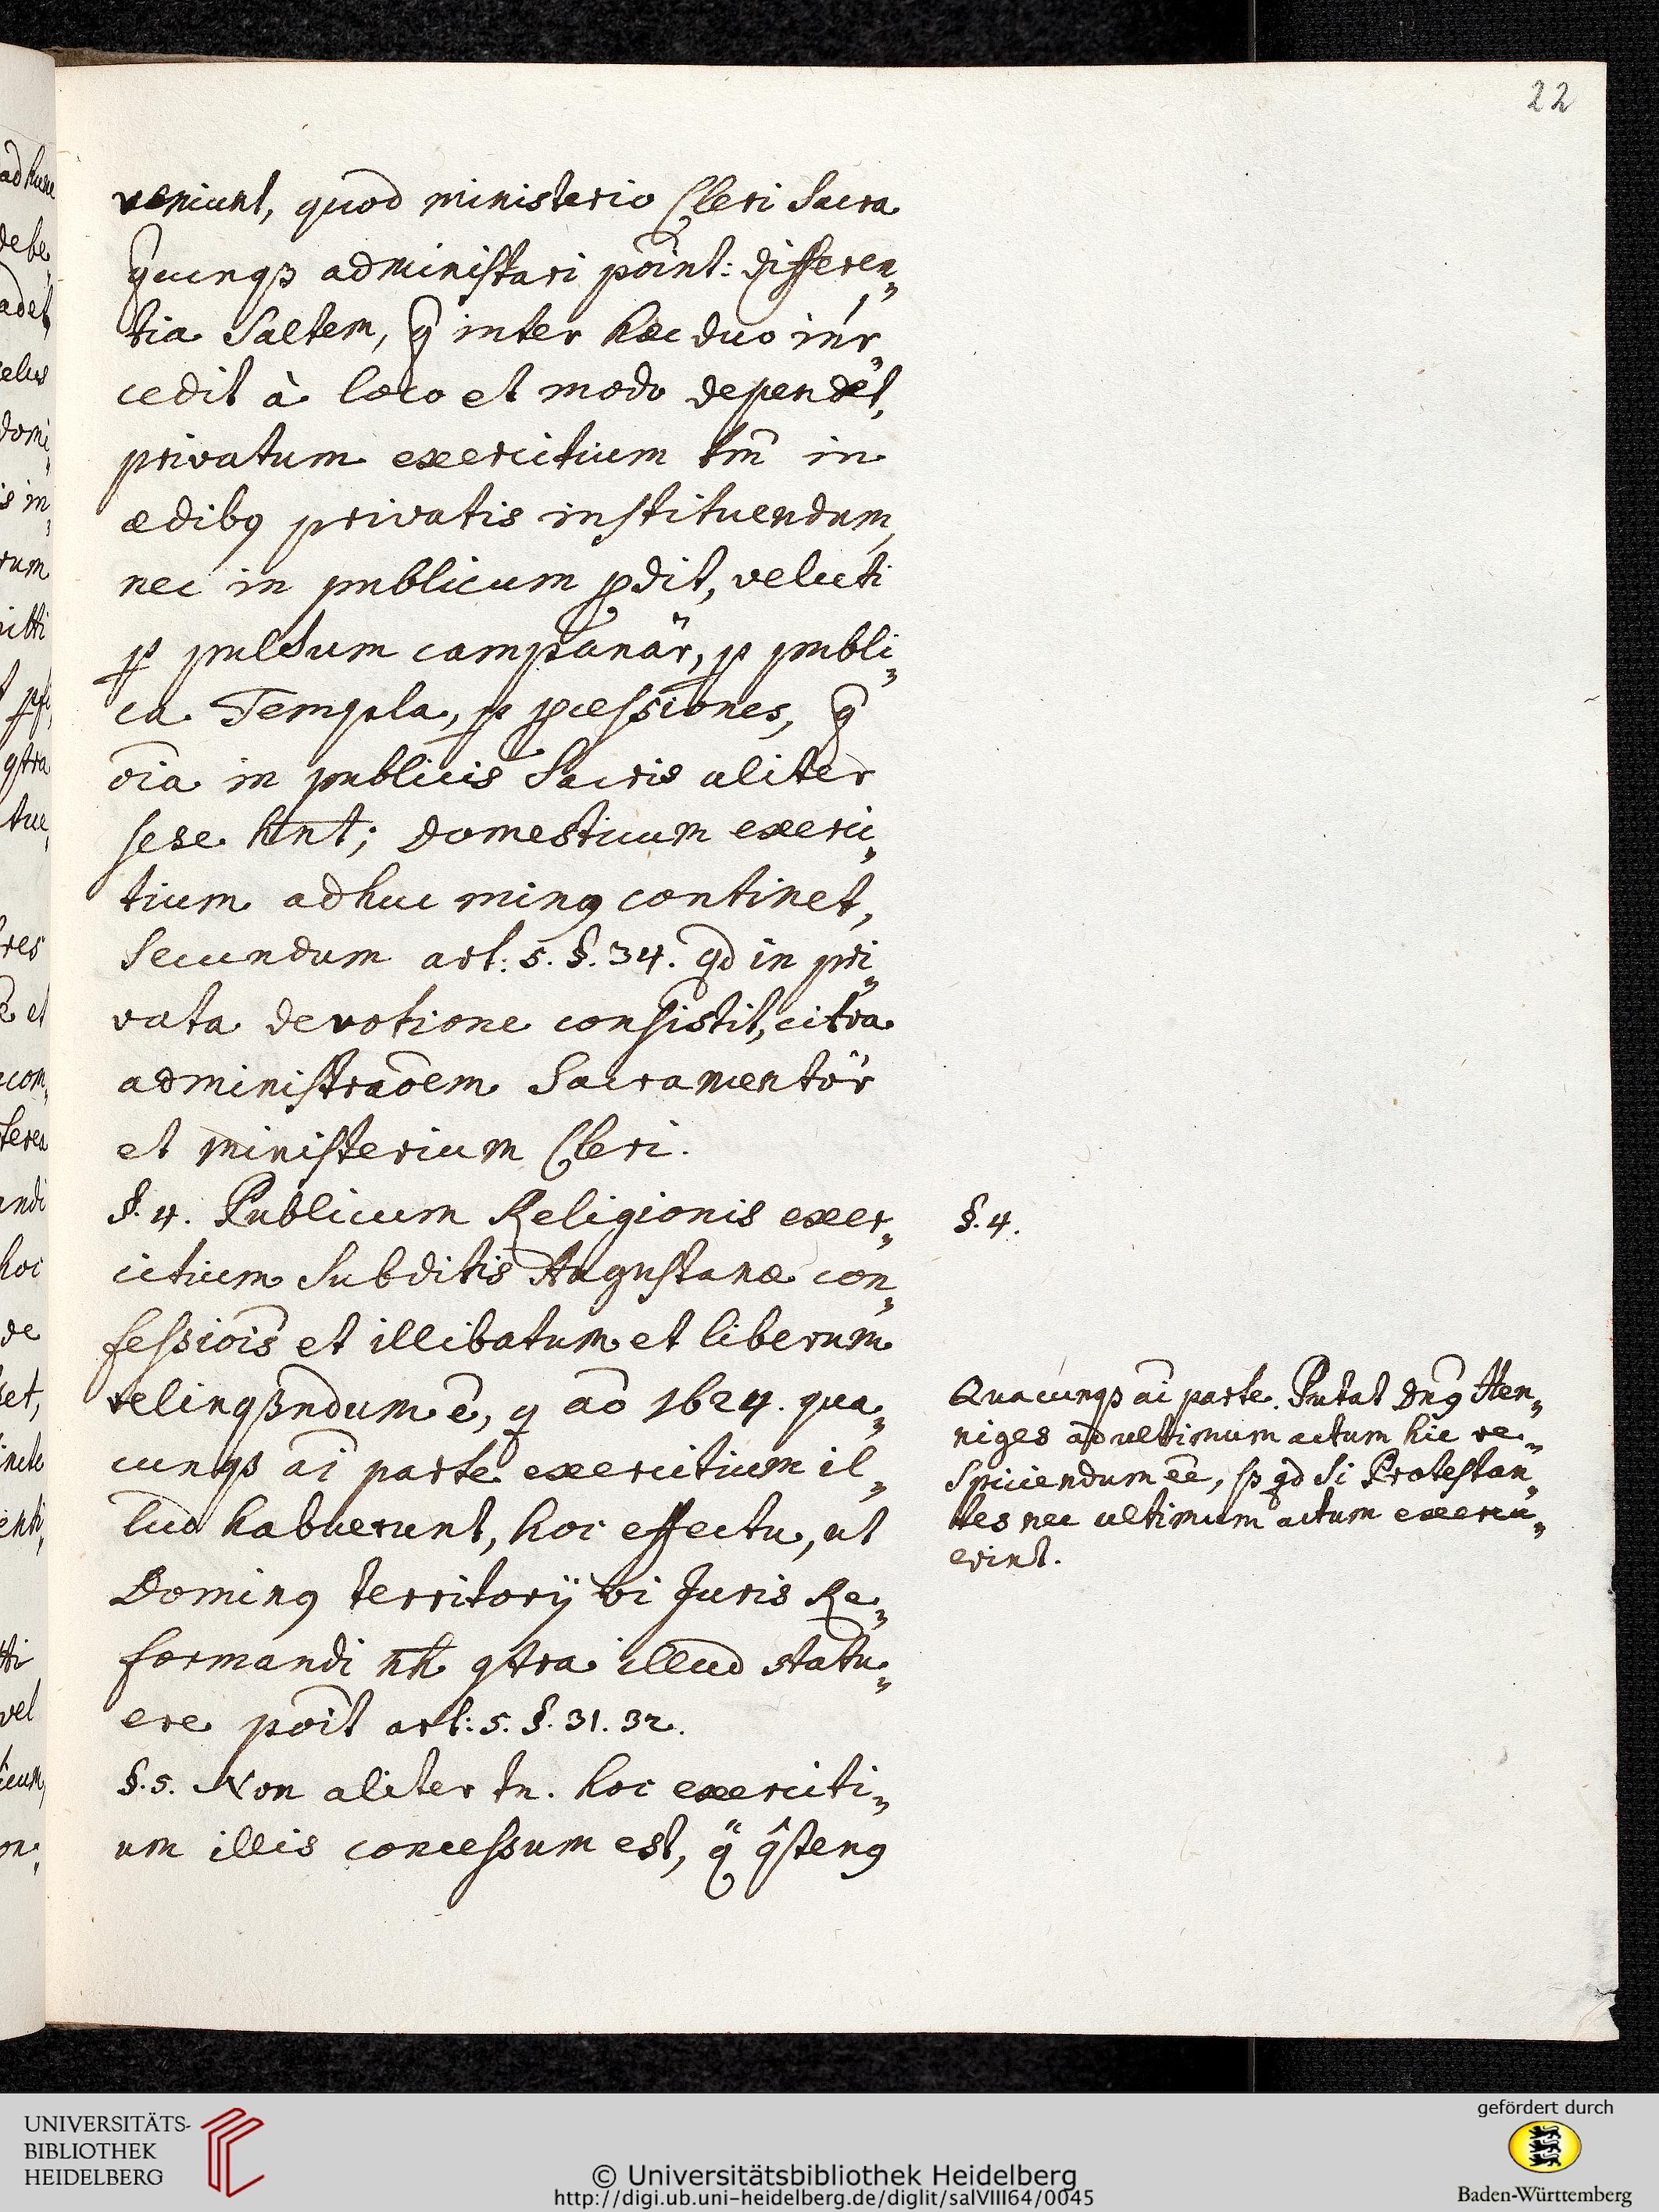 22
veniunt, quod ministerio Cleri Sacra
quinqꝫ administrari po͠int: differen„
tia saltem, q̃ inter hæc duo int͛r„
cedit à loco et modo dependet,
privatum exercitium tm̃ in
ædibꝰ privatis instituendum,
nec in publicum ꝓdit, veluti
ꝑ pulsum campanar̃, ꝑ publi„
ca Templa, ꝑ ꝓcessiones, q̃
oı̃a in publicis Sacris aliter
sese hñt; domesticum exerci„
tium adhuc minꝰ continet,
secundum art: 5. §. 34. qd in pri„
vata devotione consistit, citra
administrao͠em Sacramentor̃
et ministerium Cleri.
§. 4. Publicum Religionis exer„
citium subditis Augustanæ con„
fessiõis et illibatum et liberum
relinqꝫndum ẽ, q aõ 1624. qua„
cunqꝫ aı̃ parte exercitium il„
lud habuerunt, hoc effectu, ut
Dominꝰ territorij vi Juris Re„
formandi nh̃ ꝯtra illud statu„
ere põit art: 5. §. 31. 32.
§. 5. Non aliter tn. hoc exerciti„
um illis concessum est, q̃ q̃stenꝰ
§. 4.
Quacunqꝫ aı̃ parte. Putat Dnꝰ Hen„
niges ad ultimum actum hic re„
spiciendum eẽ, sꝑ qd si Protestan„
tes nec ultimum actum exercu„
erint.
UNIVERSITÄTS-
BIBLIOTHEK
HEIDELBERG
© Universitätsbibliothek Heidelberg
http://digi.ub.uni-heidelberg.de/diglit/salVIII64/0045
gefördert durch
Baden-Württemberg